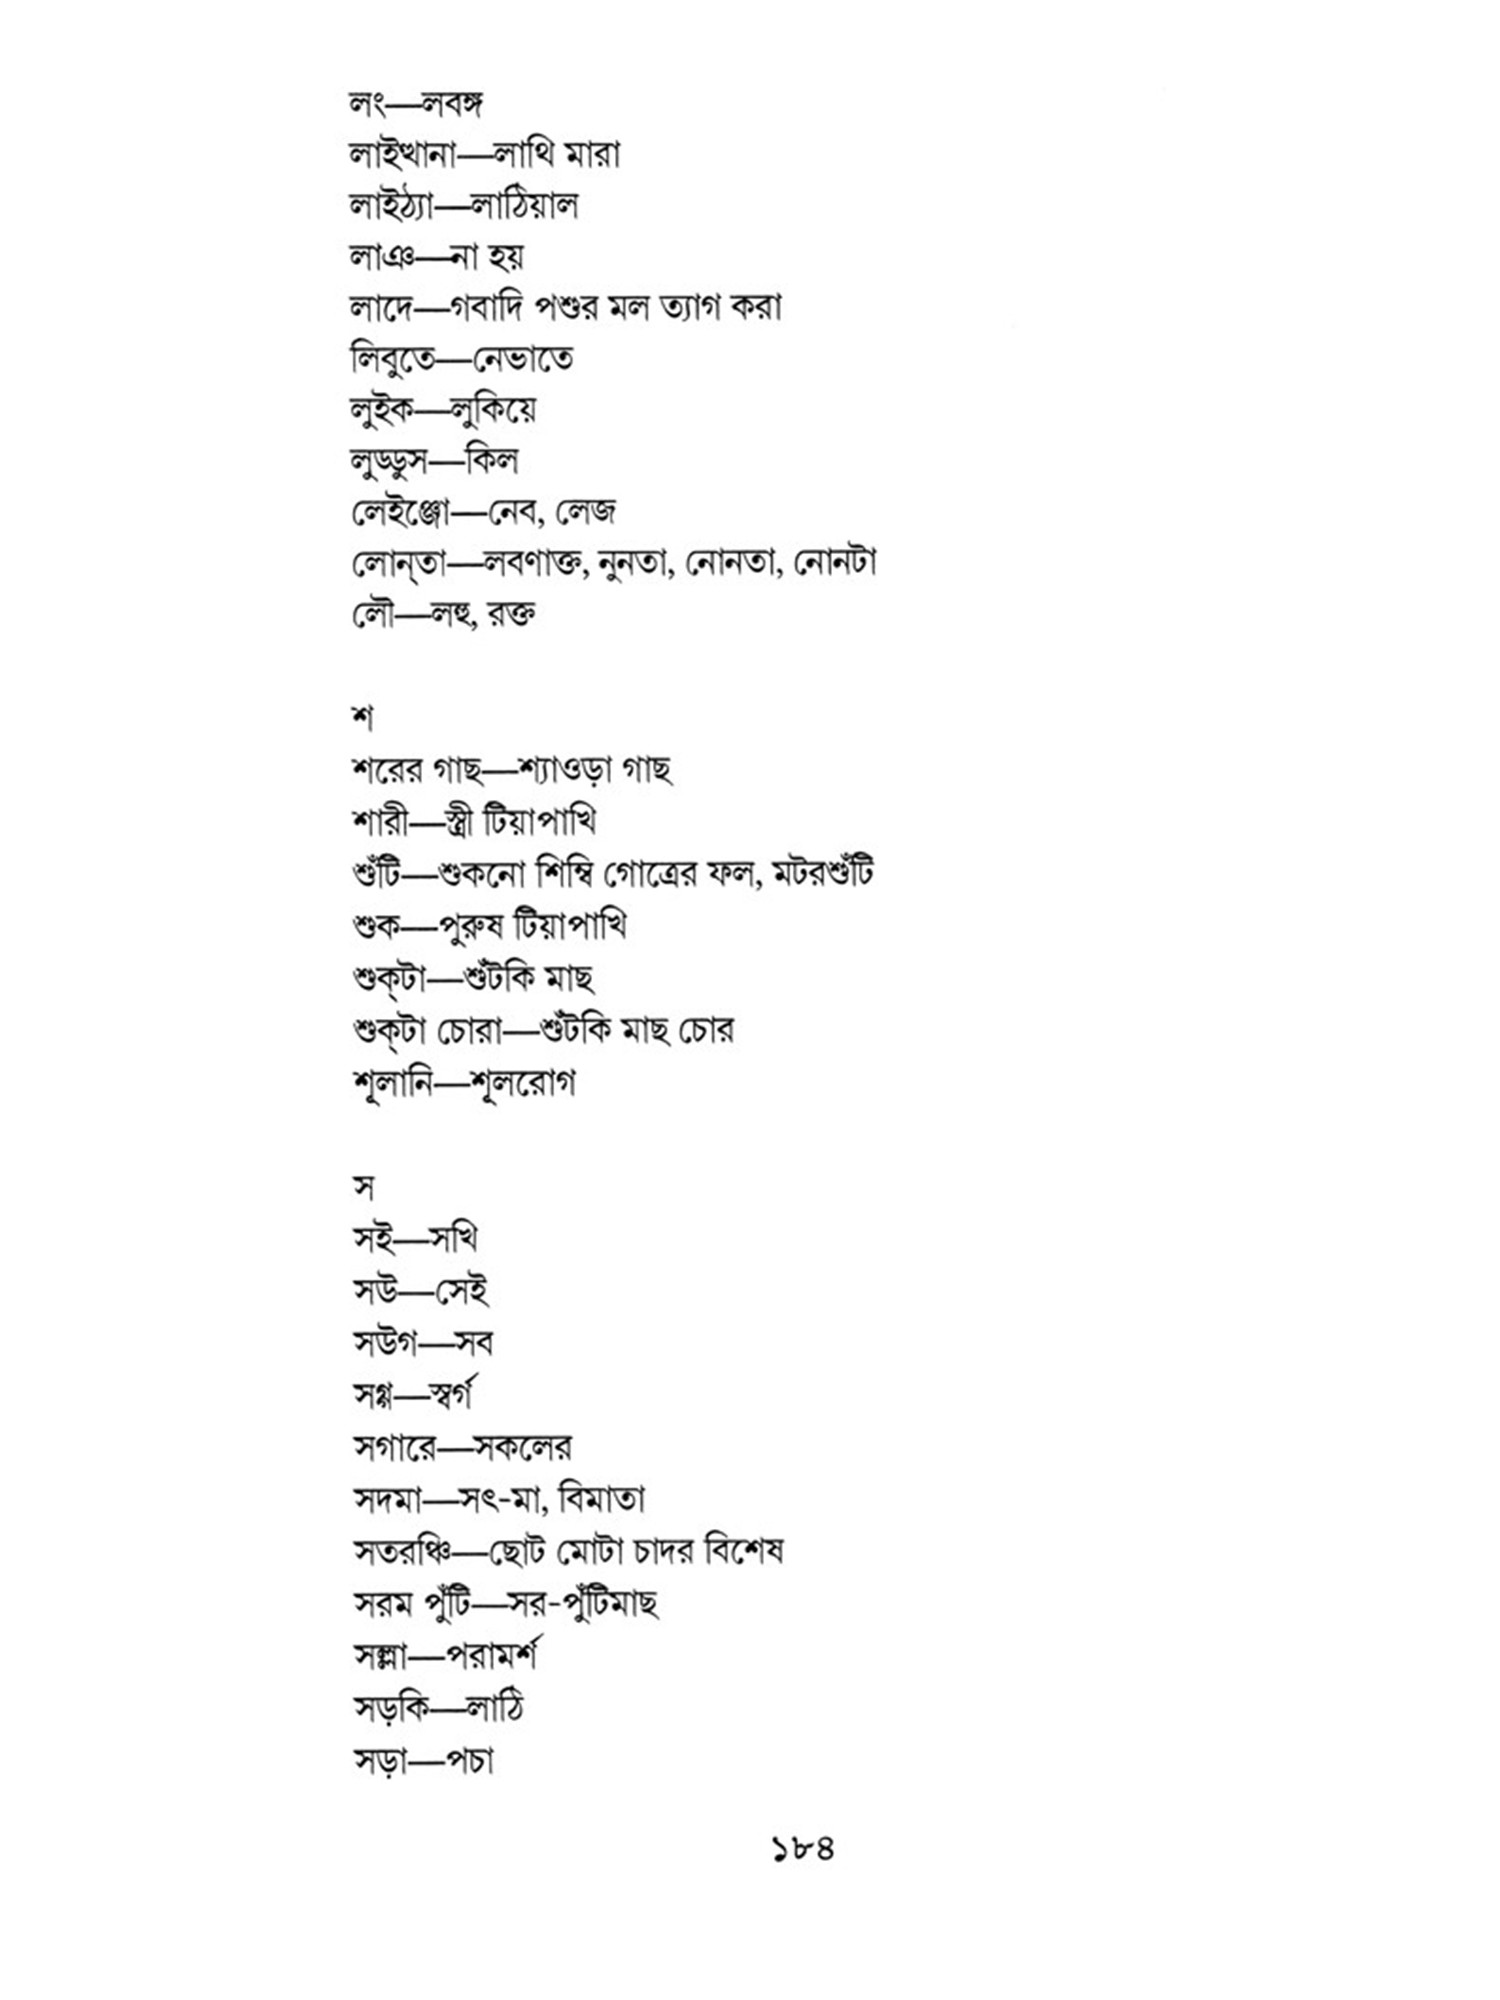 লং—লবঙ্গ
লাইত্থানা—লাথি মারা
লাইঠ্যা—লাঠিয়াল
লাঞ—না হয়
লাদে—গবাদি পশুর মল ত্যাগ করা
লিবুতে—নেভাতে
লুইক—লুকিয়ে
লুড্ডুস—কিল
লেইঞ্জো—নেব, লেজ
লোন্‌তা—লবণাক্ত, নুনতা, নোনতা, নোনটা
লৌ—লহু, রক্ত
শ
শরের গাছ—শ্যাওড়া গাছ
শারী—স্ত্রী টিয়াপাখি
শুঁটি—শুকনো শিম্বি গোত্রের ফল, মটরশুঁটি
শুক—পুরুষ টিয়াপাখি
শুক্‌টা—শুঁটকি মাছ
শুক্‌টা চোরা—শুঁটকি মাছ চোর
শূলানি—শূলরোগ
স
সই—সখি
সউ—সেই
সউগ—সব
সগ্গ—স্বর্গ
সগারে—সকলের
সদমা—সৎ-মা, বিমাতা
সতরঞ্চি—ছোট মোটা চাদর বিশেষ
সরম পুঁটি—সর-পুঁটিমাছ
সল্লা—পরামর্শ
সড়কি—লাঠি
সড়া—পচা
১৮৪